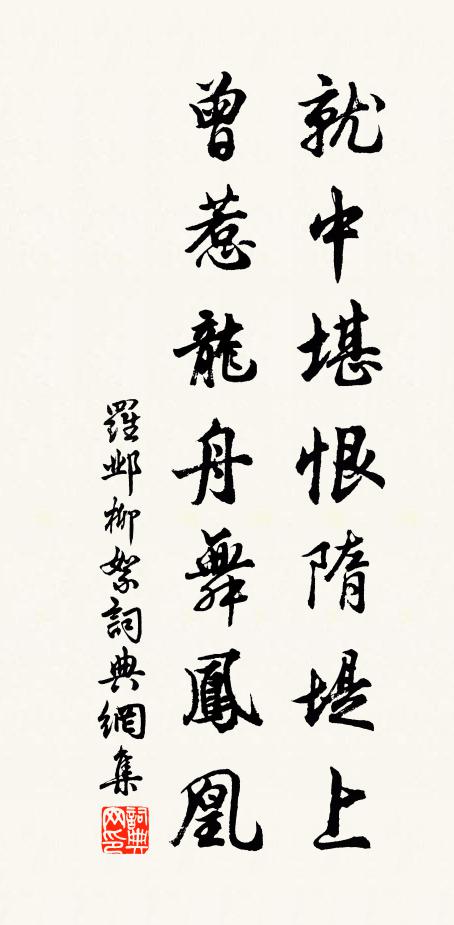 就中堪恨隋堤上
曾惹龍舟舞鳳凰
羅鄴柳絮詞典網集
詞典网印